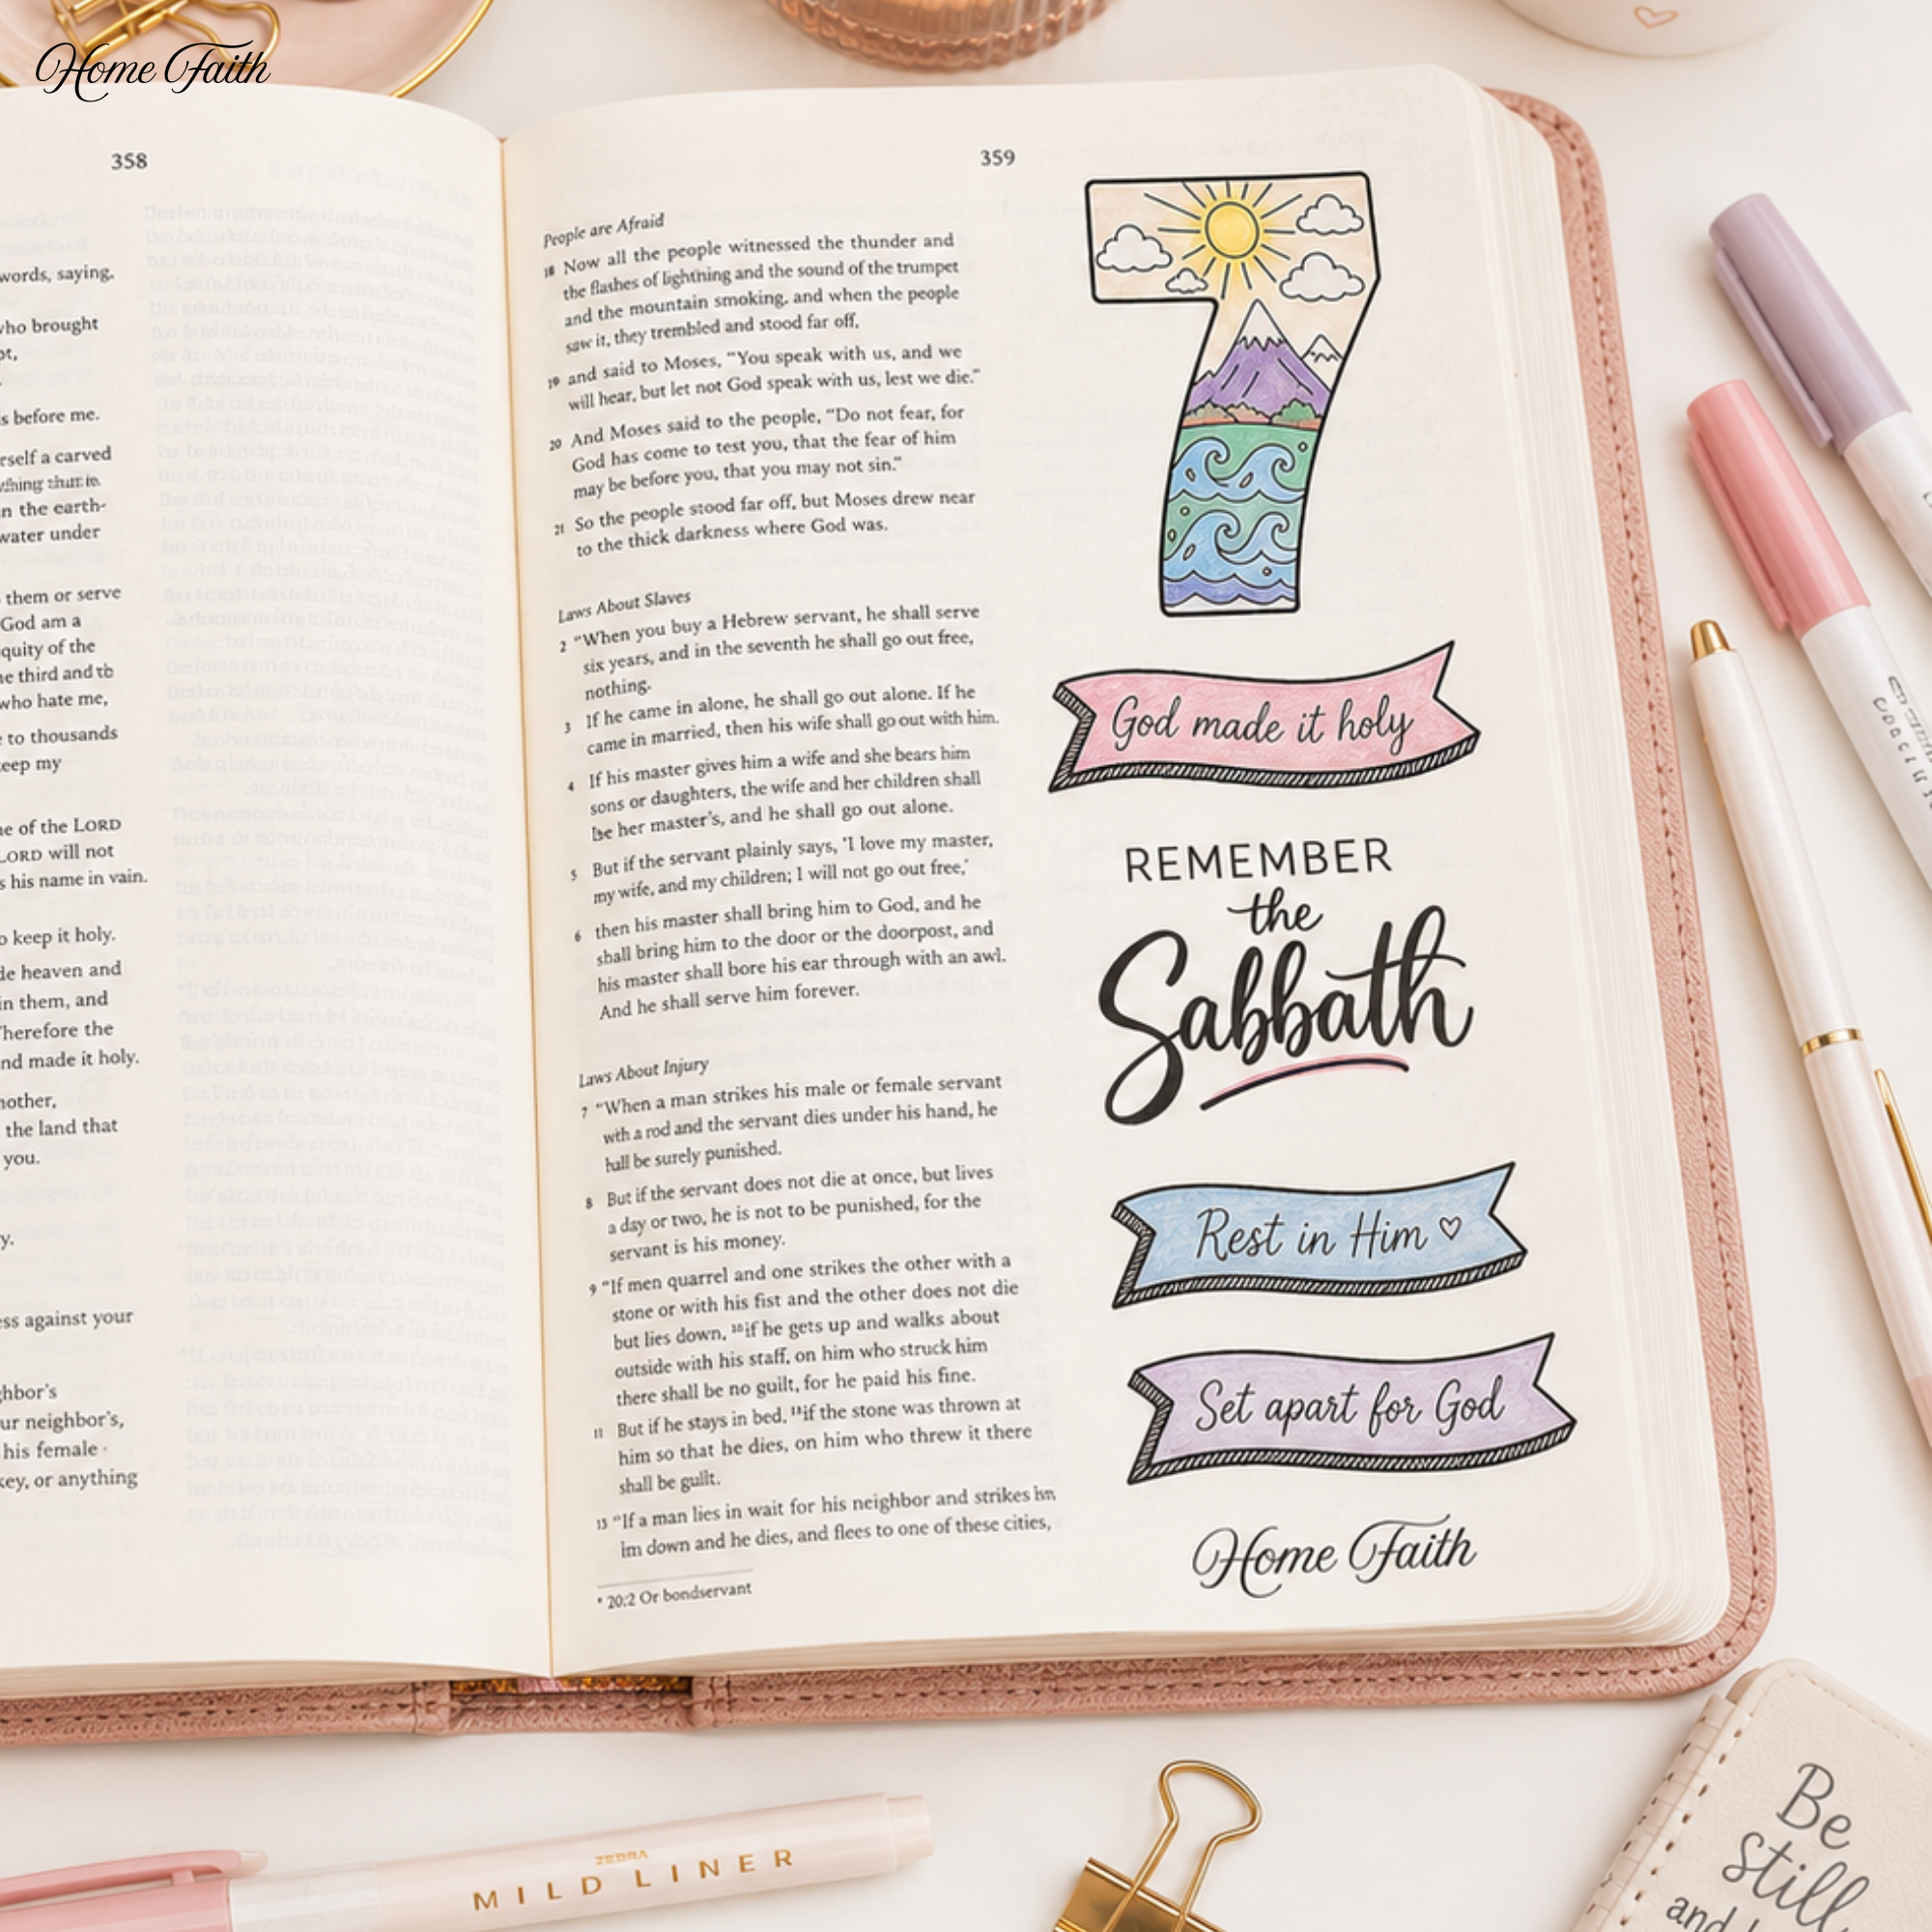 Home Faith
358
words, saying,
who brought
s before me.
rself a carved
n the earth-
water under
them or serve
God am a
quity of the
e third and
who hate me,
to thousands
eep my
e of the LORD
LORD will not
s his name in vain.
keep it holy.
de heaven and
in them, and
Therefore the
nd made it holy.
mother,
the land that
you.
y.
ess against your
ghbor's
ur neighbor's,
his female
key, or anything
359
People are Afraid
18 Now all the people witnessed the thunder and
the flashes of lightning and the sound of the trumpet
and the mountain smoking, and when the people
saw it, they trembled and stood far off,
19 and said to Moses, “You speak with us, and we
will hear, but let not God speak with us, lest we die.”
20 And Moses said to the people, “Do not fear, for
God has come to test you, that the fear of him
may be before you, that you may not sin.”
21 So the people stood far off, but Moses drew near
to the thick darkness where God was.
Laws About Slaves
2 “When you buy a Hebrew servant, he shall serve
six years, and in the seventh he shall go out free,
nothing.
3 If he came in alone, he shall go out alone. If he
came in married, then his wife shall go out with him.
4 If his master gives him a wife and she bears him
sons or daughters, the wife and her children shall
be her master's, and he shall go out alone.
5 But if the servant plainly says, 'I love my master,
my wife, and my children; I will not go out free,'
6 then his master shall bring him to God, and he
shall bring him to the door or the doorpost, and
his master shall bore his ear through with an awl.
And he shall serve him forever.
Laws About Injury
7 “When a man strikes his male or female servant
with a rod and the servant dies under his hand, he
hall be surely punished.
8 But if the servant does not die at once, but lives
a day or two, he is not to be punished, for the
servant is his money.
9 “If men quarrel and one strikes the other with a
stone or with his fist and the other does not die
but lies down, 10if he gets up and walks about
outside with his staff, on him who struck him
there shall be no guilt, for he paid his fine.
11 But if he stays in bed, 11if the stone was thrown at
him so that he dies, on him who threw it there
shall be guilt.
13 “If a man lies in wait for his neighbor and strikes
im down and he dies, and flees to one of these cities,
* 20:2 Or bondservant
7
God made it holy
REMEMBER
the
Sabbath
Rest in Him ♡
Set apart for God
Home Faith
ZEBRA
MILD LINER
Be
still
and